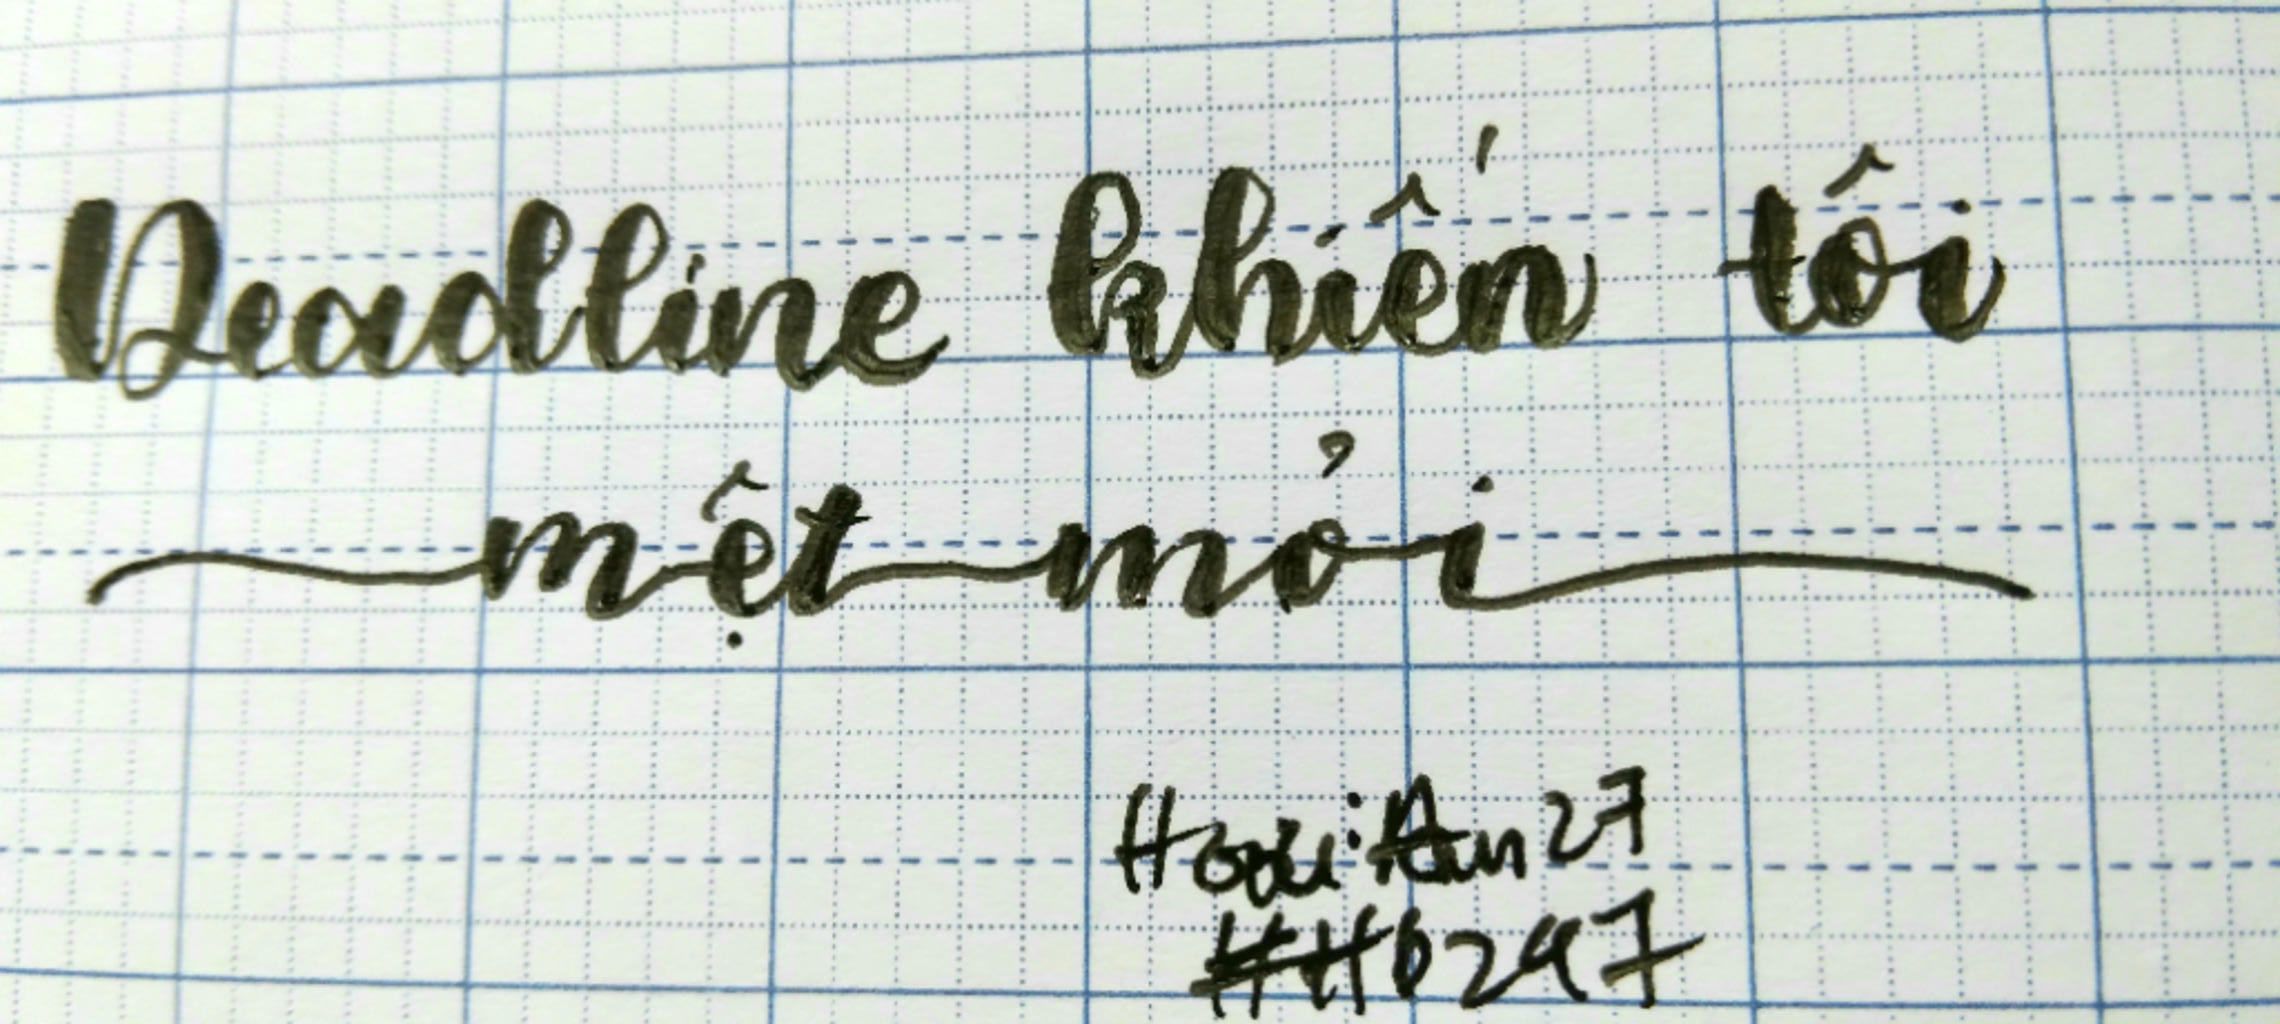 Deadline khiến tôi
mệt mỏi
HoaiAn27